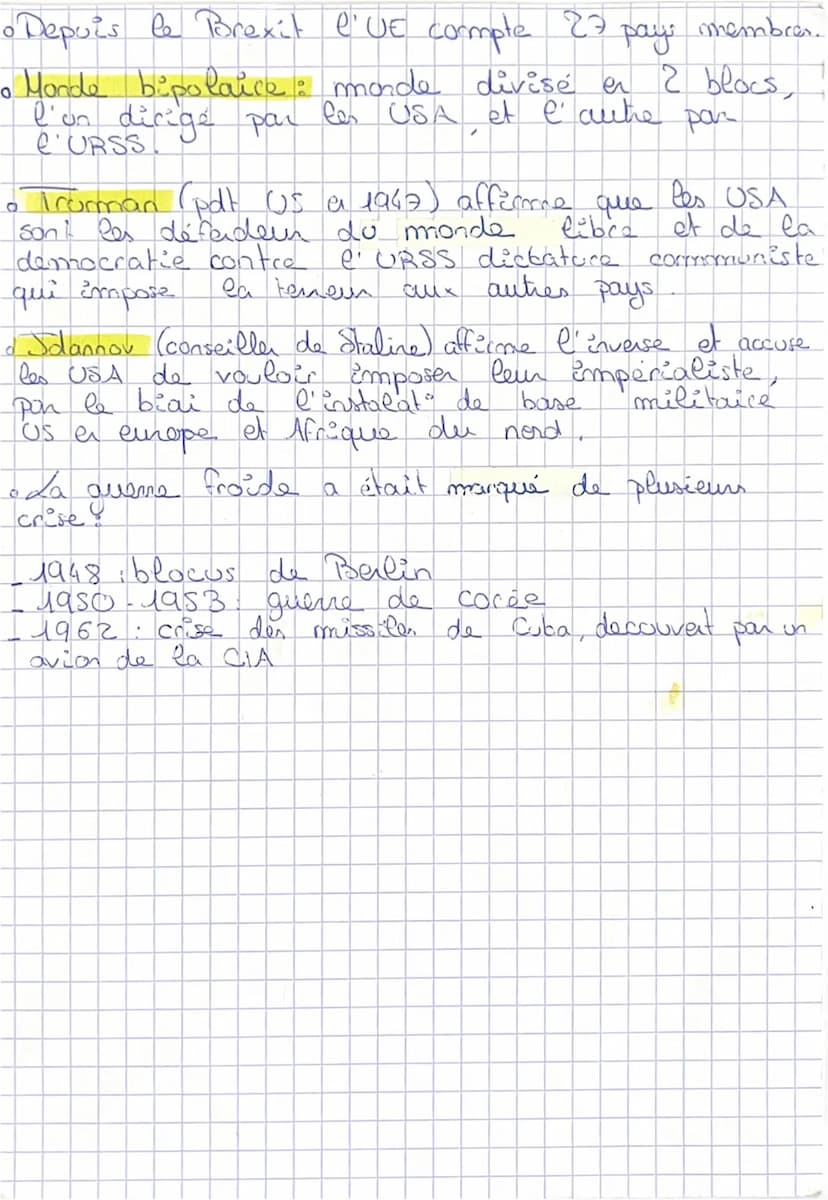 o Depuis le Brexit l'UE compte 27 pays membres.
o Monde bipolaire : monde divisé en 2 blocs,
l'un dirigé par les USA, et l'autre par
l'URSS.
o Truman (pdt US en 1947) affirme que les USA
sont les défendeur du monde libre et de la
democratie contre l'URSS dictature communiste
qui impose la terreur aux autres pays.
o Jdannov (conseiller de Staline) affirme l'inverse et accuse
les USA de vouloir imposer leur impérialiste,
par le biai de l'instalat° de base militaire
US en europe et Afrique du nord.
o La guerre froide a était marqué de plusieurs
crise :
- 1948 : blocus de Berlin
- 1950 - 1953 : guerre de corée
- 1962 : crise des missiles de Cuba, decouvert par un
avion de la CIA